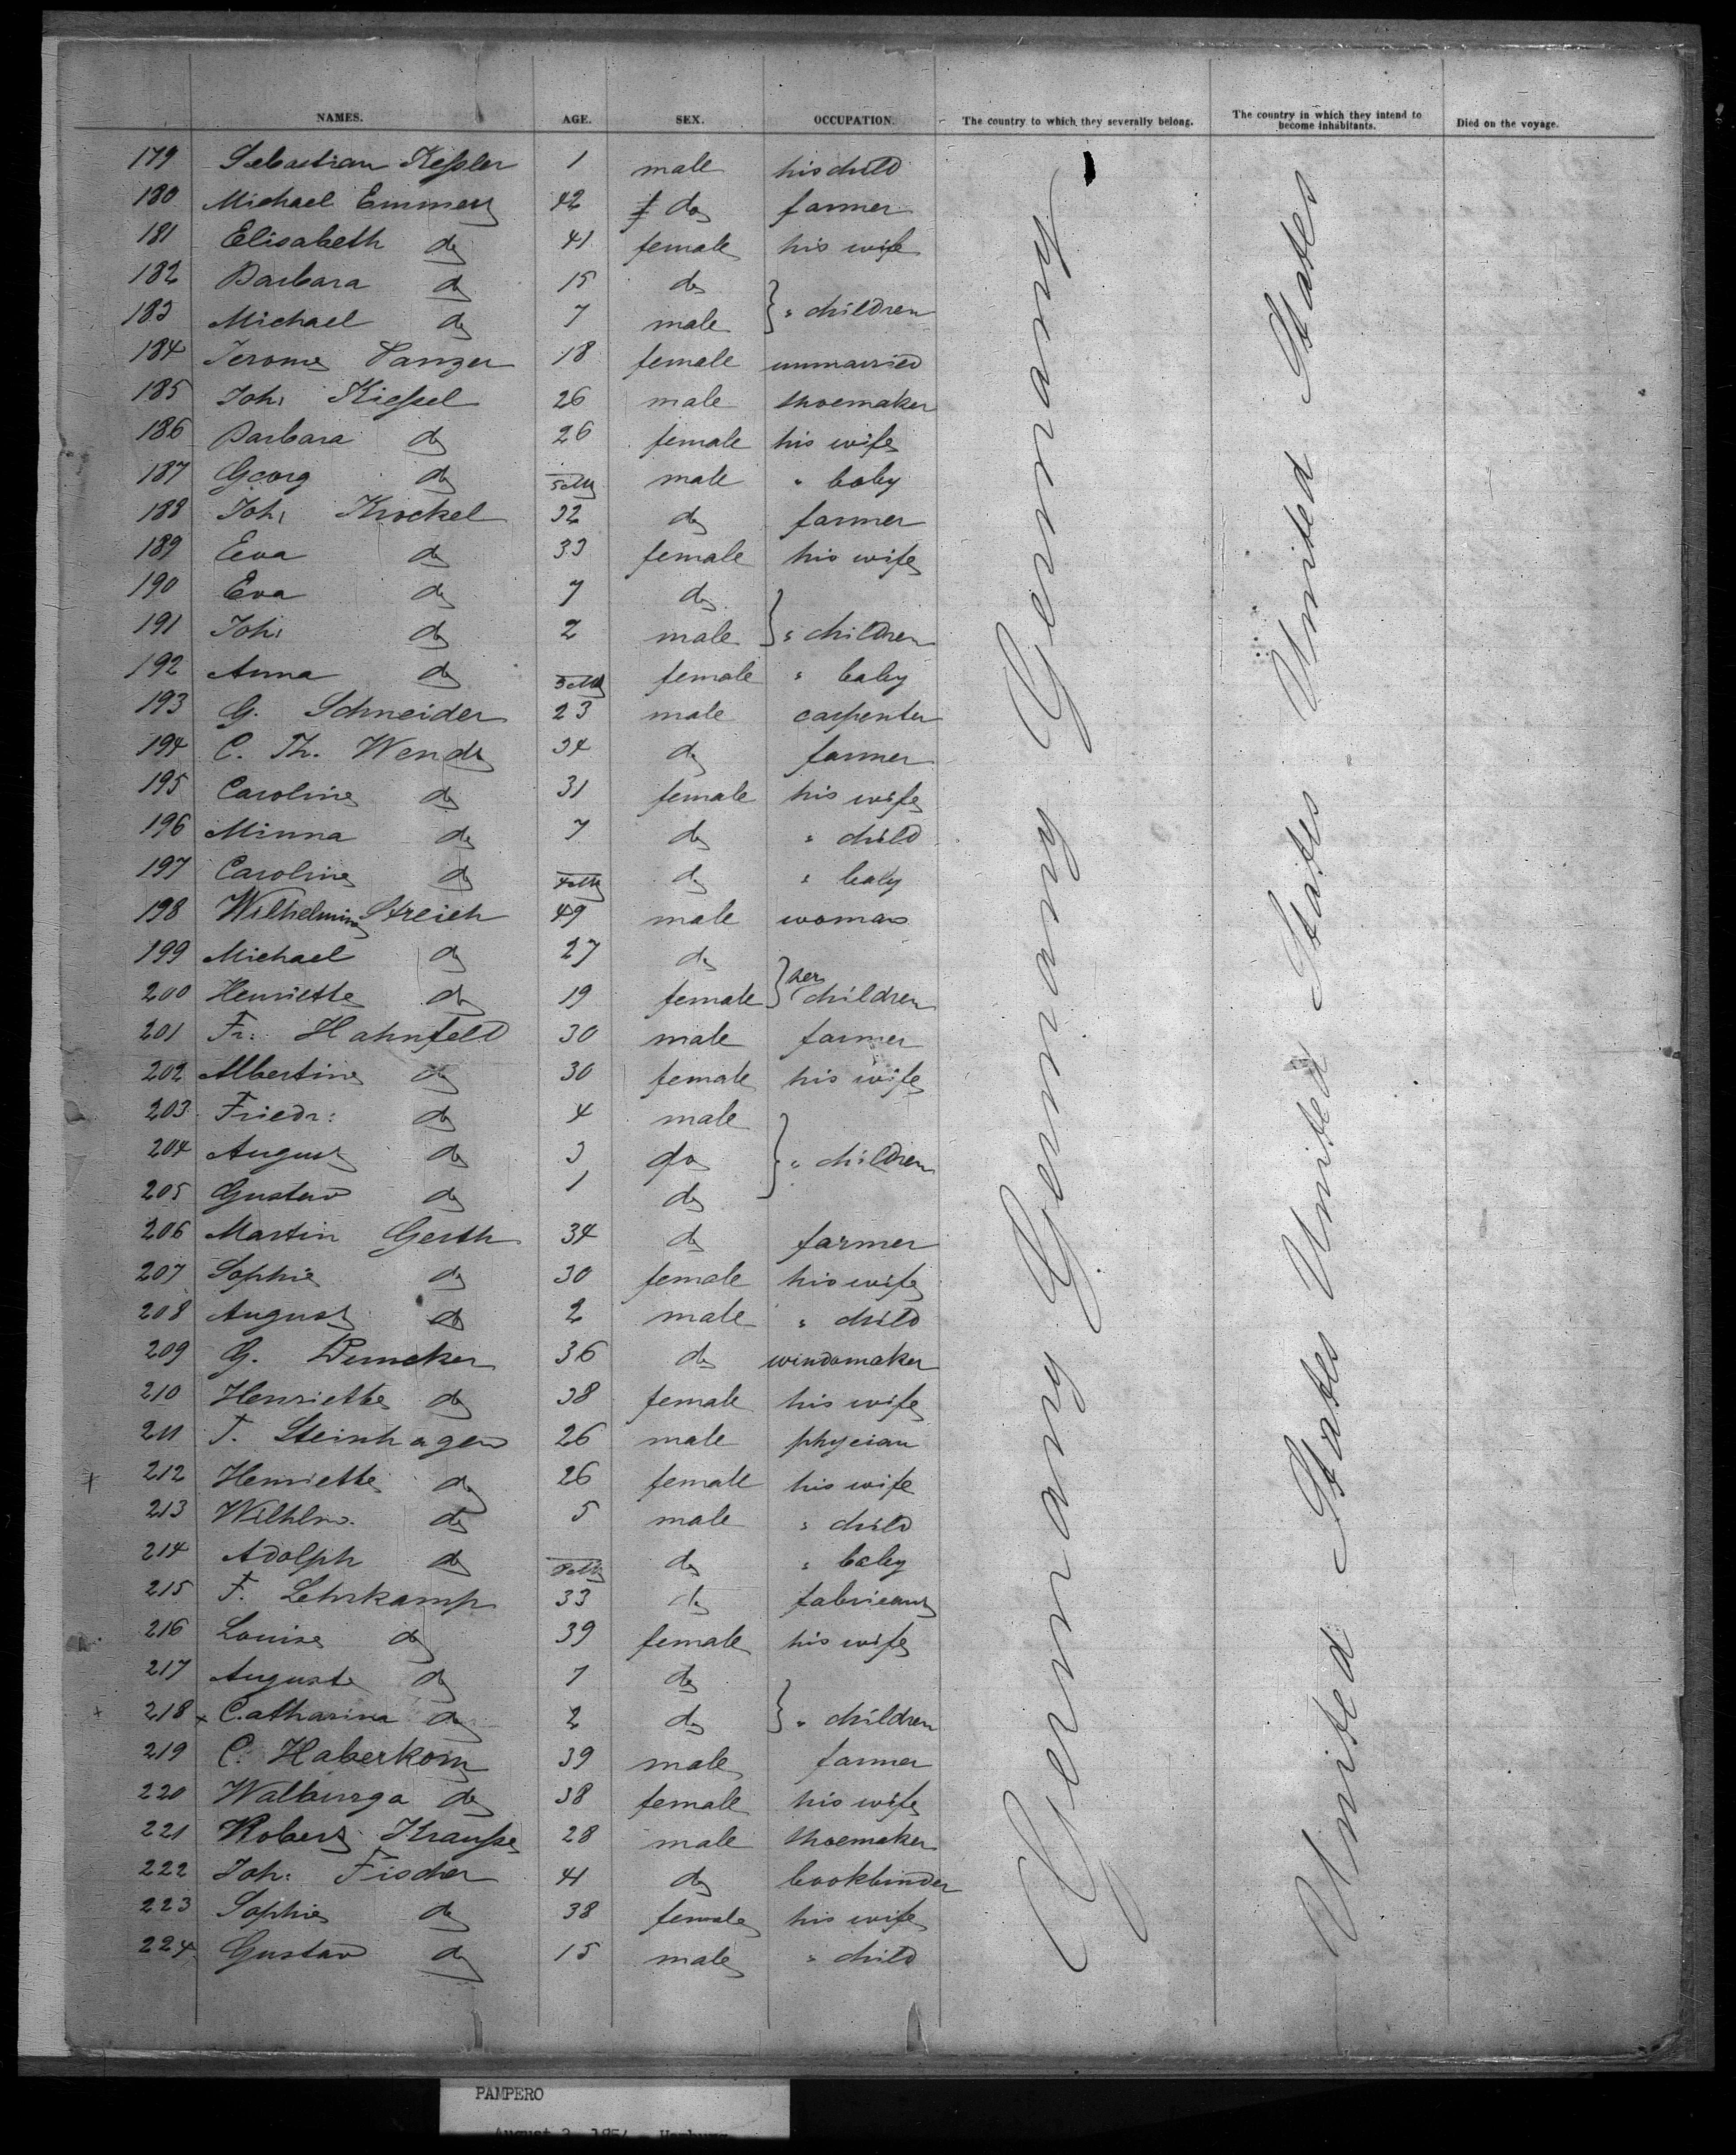 NAMES. AGE. SEX. OCCUPATION. The country to which they severally belong. The country in which they intend to become inhabitants. Died on the voyage.
179 Sebastian Keßler 1 male his child
180 Michael Emmert 42 do farmer
181 Elisabeth do 41 female his wife
182 Barbara do 15 do
183 Michael do 7 male " children
184 Jerome Tanzer 18 female unmarried
185 Joh: Kießel 26 male shoemaker
186 Barbara do 26 female his wife
187 Georg do male " baby
188 Joh: Krockel 32 do farmer
189 Eeva do 33 female his wife
190 Eva do 7 do
191 Joh: do 2 male " children
192 Anna do female " baby
193 G. Schneider 23 male carpenter
194 C. Th. Wendt 34 do farmer
195 Caroline do 31 female his wife
196 Minna do 7 do " child
197 Caroline do do " baby
198 Wilhelmine Streich 49 male woman
199 Michael do 27 do
200 Henriette do 19 female her children
201 Fr: Hahnfeld 30 male farmer
202 Albertine do 30 female his wife
203 Friedr: do 4 male
204 August do 3 do " children
205 Gustav do 1 do
206 Martin Gerth 34 do farmer
207 Sophie do 30 female his wife
208 August do 2 male " child
209 G. 36 do windomaker
210 Henriette do 38 female his wife
211 T. Steinhagen 26 male phycian
212 Henriette do 26 female his wife
213 Wilhlm. do 5 male " child
214 Adolph do do " baby
215 F. Lehrkamp 33 do fabricant
216 Louise do 39 female his wife
217 Auguste do 7 do
218 x Catharina do 2 do " children
219 C. Haberkorn 39 male farmer
220 Walburga do 38 female his wife
221 Robert Krauße 28 male shoemaker
222 Joh: Fischer 41 do bookbinder
223 Sophie do 38 female his wife
224 Gustav do 15 male " child
Germany Germany Germany
United States United States United States
PAMPERO
August 3, 1854 - Hamburg